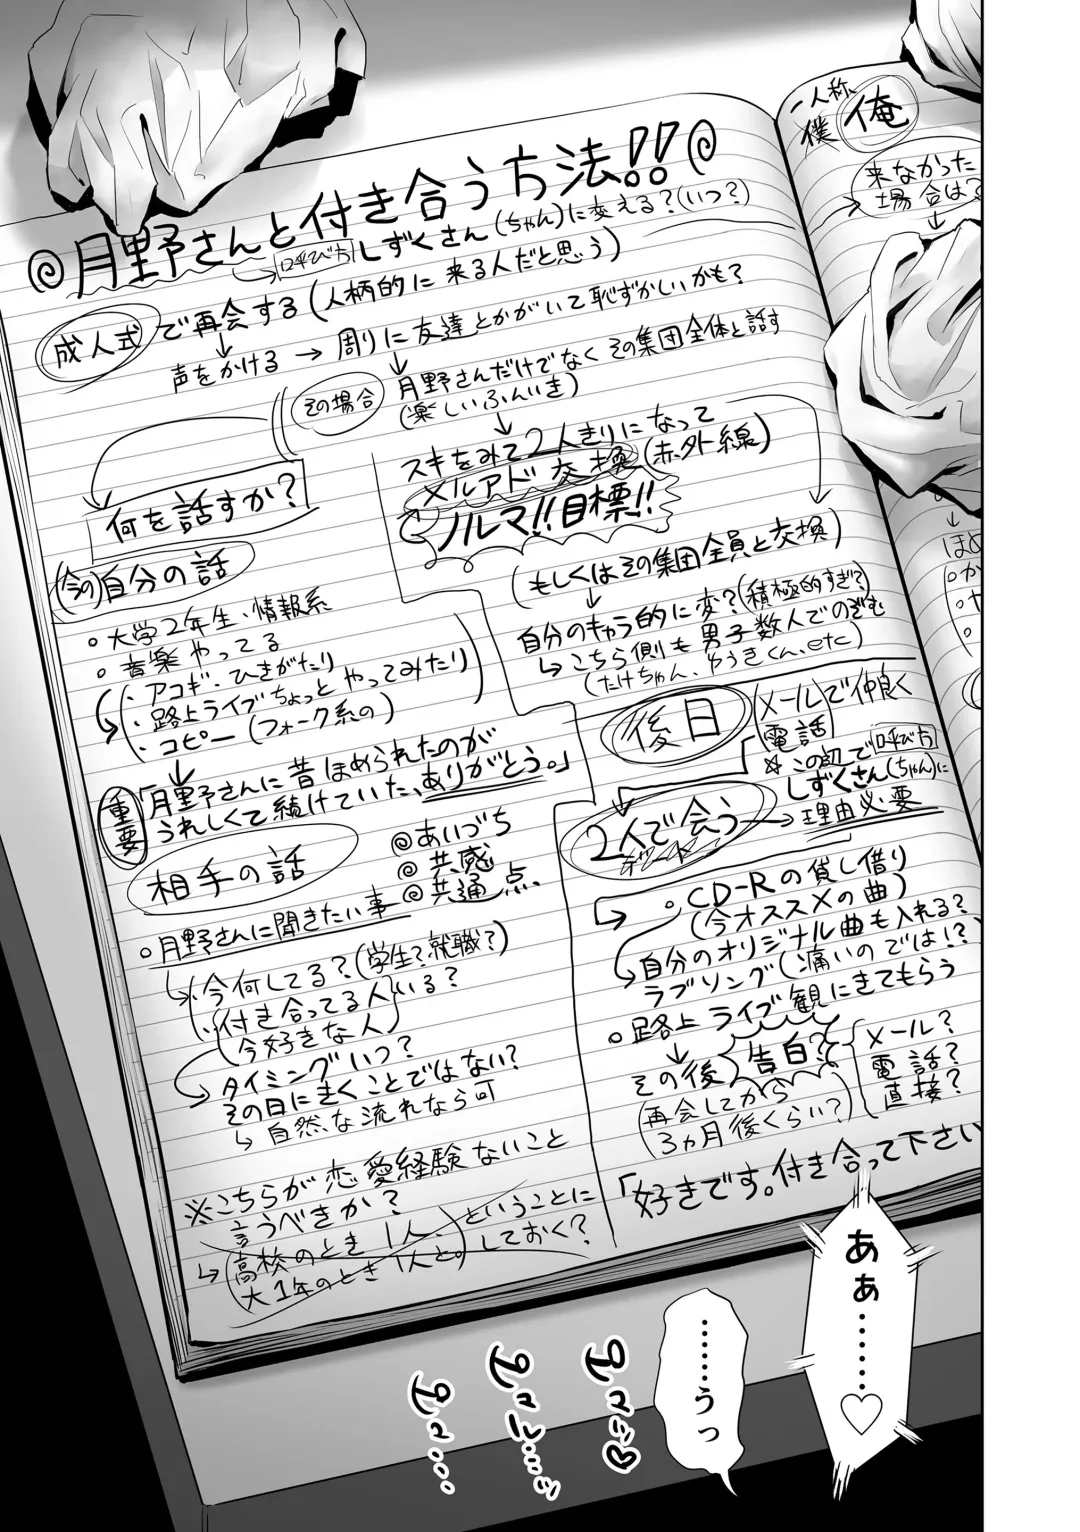 ◎月野さんと付き合う方法!!◎
呼び方 しずくさん(ちゃん)に変える?(いつ?)
成人式で再会する(人柄的に来る人だと思う)
声をかける→周りに友達とかがいて恥ずかしいかも?
その場合
月野さんだけでなくその集団全体と話す
(楽しいふんいき)
スキをみて2人きりになって
メルアド交換(赤外線)
ノルマ!!目標!!
(もしくはその集団全員と交換)
自分のキャラ的に変?(積極的すぎ?)
↳こちら側も男子数人でのぞむ
(たけちゃん、ゆうきくん、etc)
何を話すか?
(今の)自分の話
○大学2年生・情報系
○音楽やってる
・アコギ・ひきがたり
・路上ライブちょっとやってみたり
・コピー(フォーク系の)
重要
「月野さんに昔ほめられたのが
うれしくて続けていた、ありがとう。」
相手の話
◎あいづち
◎共感
◎共通点、
○月野さんに聞きたい事
・今何してる?(学生?就職?)
・付き合ってる人いる?
今好きな人
→タイミングいつ?
その日にきくことではない?
↳自然な流れなら可
※こちらが恋愛経験ないこと
言うべきか?
↳高校のとき1人、
大1年のとき1人と。
ということに
しておく?
後日
メールで仲良く
電話
☆この辺で呼び方
しずくさん(ちゃん)に
理由必要
2人で会う
デート
・CD-Rの貸し借り
(今オススメの曲)
自分のオリジナル曲も入れる?
ラブソング(痛いのでは!?)
○路上ライブ観にきてもらう
その後告白?
(再会してから
3ヵ月後くらい?)
メール?
電話?
直接?
「好きです。付き合って下さい
一人称
僕 俺
来なかった
場合は?
ほめ
あぁ……♡
……うっ